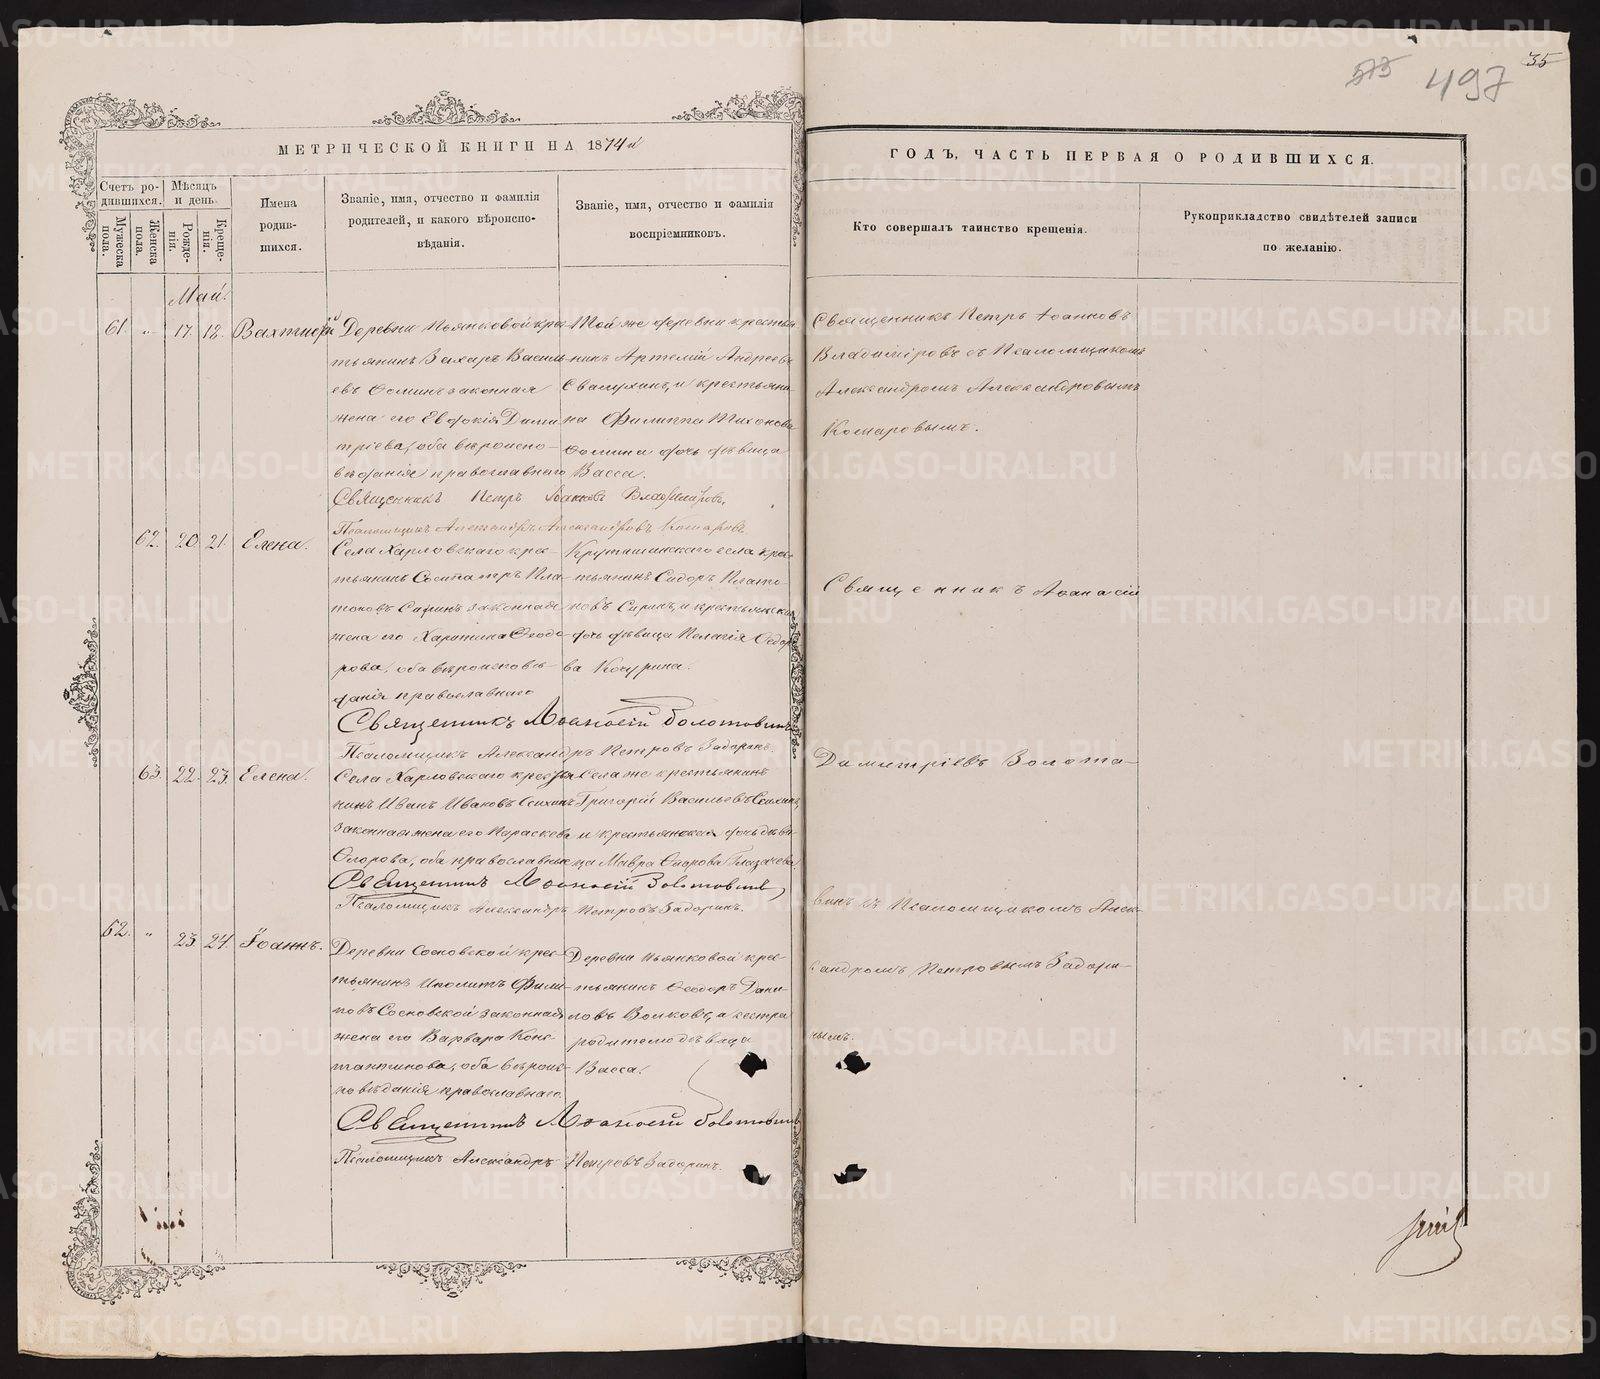 35
573 497
МЕТРИЧЕСКОЙ КНИГИ НА 1874й
ГОДЪ, ЧАСТЬ ПЕРВАЯ О РОДИВШИХСЯ.
Счетъ ро-
дившихся.
Мужеска пола.
Женска пола.
Мѣсяцъ
и день.
Рожде-
нія.
Креще-
нія.
Имена
родив-
шихся.
Званіе, имя, отчество и фамилія
родителей, и какого вѣроиспо-
вѣданія.
Званіе, имя, отчество и фамилія
воспріемниковъ.
Кто совершалъ таинство крещенія.
Рукоприкладство свидѣтелей записи
по желанію.
Май.
61. „ 17. 18.
Деревни Пьянковой крес-
тьянинъ Захаръ Василь-
евъ Осминъ законная
жена его Евдокія Дими-
тріева, оба вѣроиспо-
вѣданія православнаго
Той же деревни крестья-
нинъ Артемій Андреевъ
и крестьяни-
на Филиппа Тихонова
Осмина дочь дѣвица
Васса.
Священникъ Петръ Іоанновъ
Владиміровъ съ Псаломщикомъ
Александромъ Александровымъ
Комаровымъ.
Священникъ Петръ Іоанновъ Владиміровъ.
Псаломщикъ Александръ Александровъ Комаровъ.
62. 20. 21. Елена.
Села Харловскаго крес-
тьянинъ Сосипатръ Пла-
тоновъ законная
жена его Харитина Ѳеодо-
рова, оба вѣроисповѣ-
данія православнаго
Крутишинскаго села крес-
тьянинъ Сидоръ Плато-
новъ и крестьянская
дочь дѣвица Пелагія Ѳедоро-
ва Кочурина.
Священникъ Аѳанасій
Священникъ Аѳанасій Золотавинъ
Псаломщикъ Александръ Петровъ Задоринъ.
63. 22. 23. Елена.
Села Харловскаго крестья-
нинъ Иванъ Ивановъ
законная жена его Параскева
Ѳедорова, оба православные
Села же крестьянинъ
Григорій Васильевъ
и крестьянская дочь дѣви-
ца Мавра Ѳедорова Глазачева
Димитріевъ Золота-
Священникъ Аѳанасій Золотавинъ
Псаломщикъ Александръ Петровъ Задоринъ.
винъ съ Псаломщикомъ Алек-
62. „ 23. 24. Іоаннъ.
Деревни Сосновской крес-
тьянинъ Иполитъ Фили-
повъ Сосновской законная
жена его Варвара Конс-
тантинова, оба вѣроис-
повѣданія православнаго
Деревни Пьянковой крес-
тьянинъ Ѳеодоръ Дани-
ловъ Волковъ, а сестра
родителю дѣвица
Васса.
сандромъ Петровымъ Задори-
нымъ.
Священникъ Аѳанасій Золотавинъ
Псаломщикъ Александръ Петровъ Задоринъ.
METRIKI.GASO-URAL.RU